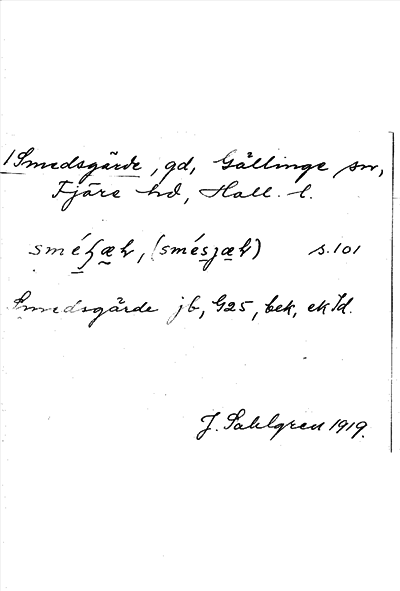 /Smedsgärde, gd, Gällinge sn,
Fjäre hd, Hall. l.
(smésjæ) s. 101
Smedsgärde jb, G25, bek, ekId.
J. Sahlgren 1919.